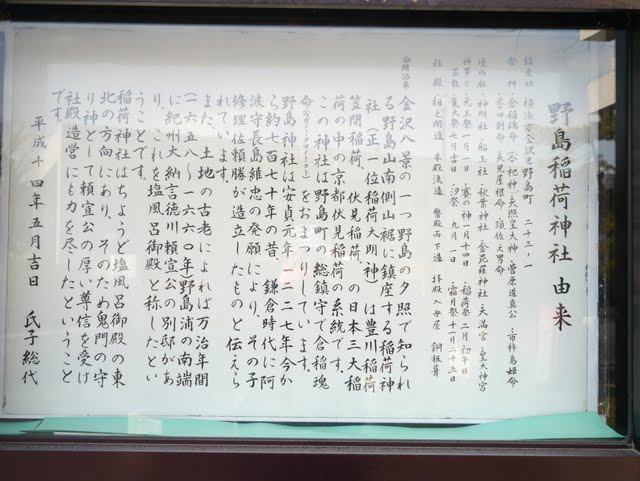 野島稲荷神社 由来
鎮座地 横浜市金沢区野島町 二十三ノ一
祭神 倉稲魂命 合祀神・天照皇大神・菅原道真公・市杵島姫命
誉田別命・天児屋根命・須佐之男命
境内社 神明社・船玉社・秋葉神社・金毘羅神社・天満宮・皇大神宮
神事と 元旦祭一月一日・賽の神一月十四日・稲荷祭二月初午日
芸能 夏大祭七月吉日・汐祭 九月一日・霜月祭十一月二十三日
社殿 相之間造 本殿流造 幣殿両下造 拝殿入母屋 銅板葺
由緒沿革
金沢八景の一つ野島の夕照で知られ
る野島山南側山裾に鎮座する稲荷神
社(正一位稲荷大明神)は豊川稲荷
笠間稲荷、伏見稲荷、の日本三大稲
荷の中の京都伏見稲荷の系統です。
この神社は野島町の総鎮守で倉稲魂
命をおまつりしています。
野島神社は安貞元年一二二七年今か
ら約七百七十年の昔、鎌倉時代に阿
波守長島維忠の発願により、その子
修理佐頼勝が造立したものと伝えら
れています。
また、土地の古老によれば万治年間
(一六五八~一六六〇年)野島浦の南端
に紀州大納言徳川頼宣公の別邸があ
り、これを塩風呂御殿と称したとい
うことです。
稲荷神社はちょうど塩風呂御殿の東
北の方向にあり、そのため鬼門の守
り神として頼宣公の厚い尊信を受け
社殿造営にも力を尽したということ
です。
平成十四年五月吉日 氏子総代